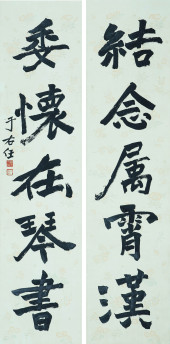 結念屬霄漢
委懷在琴書
于右任